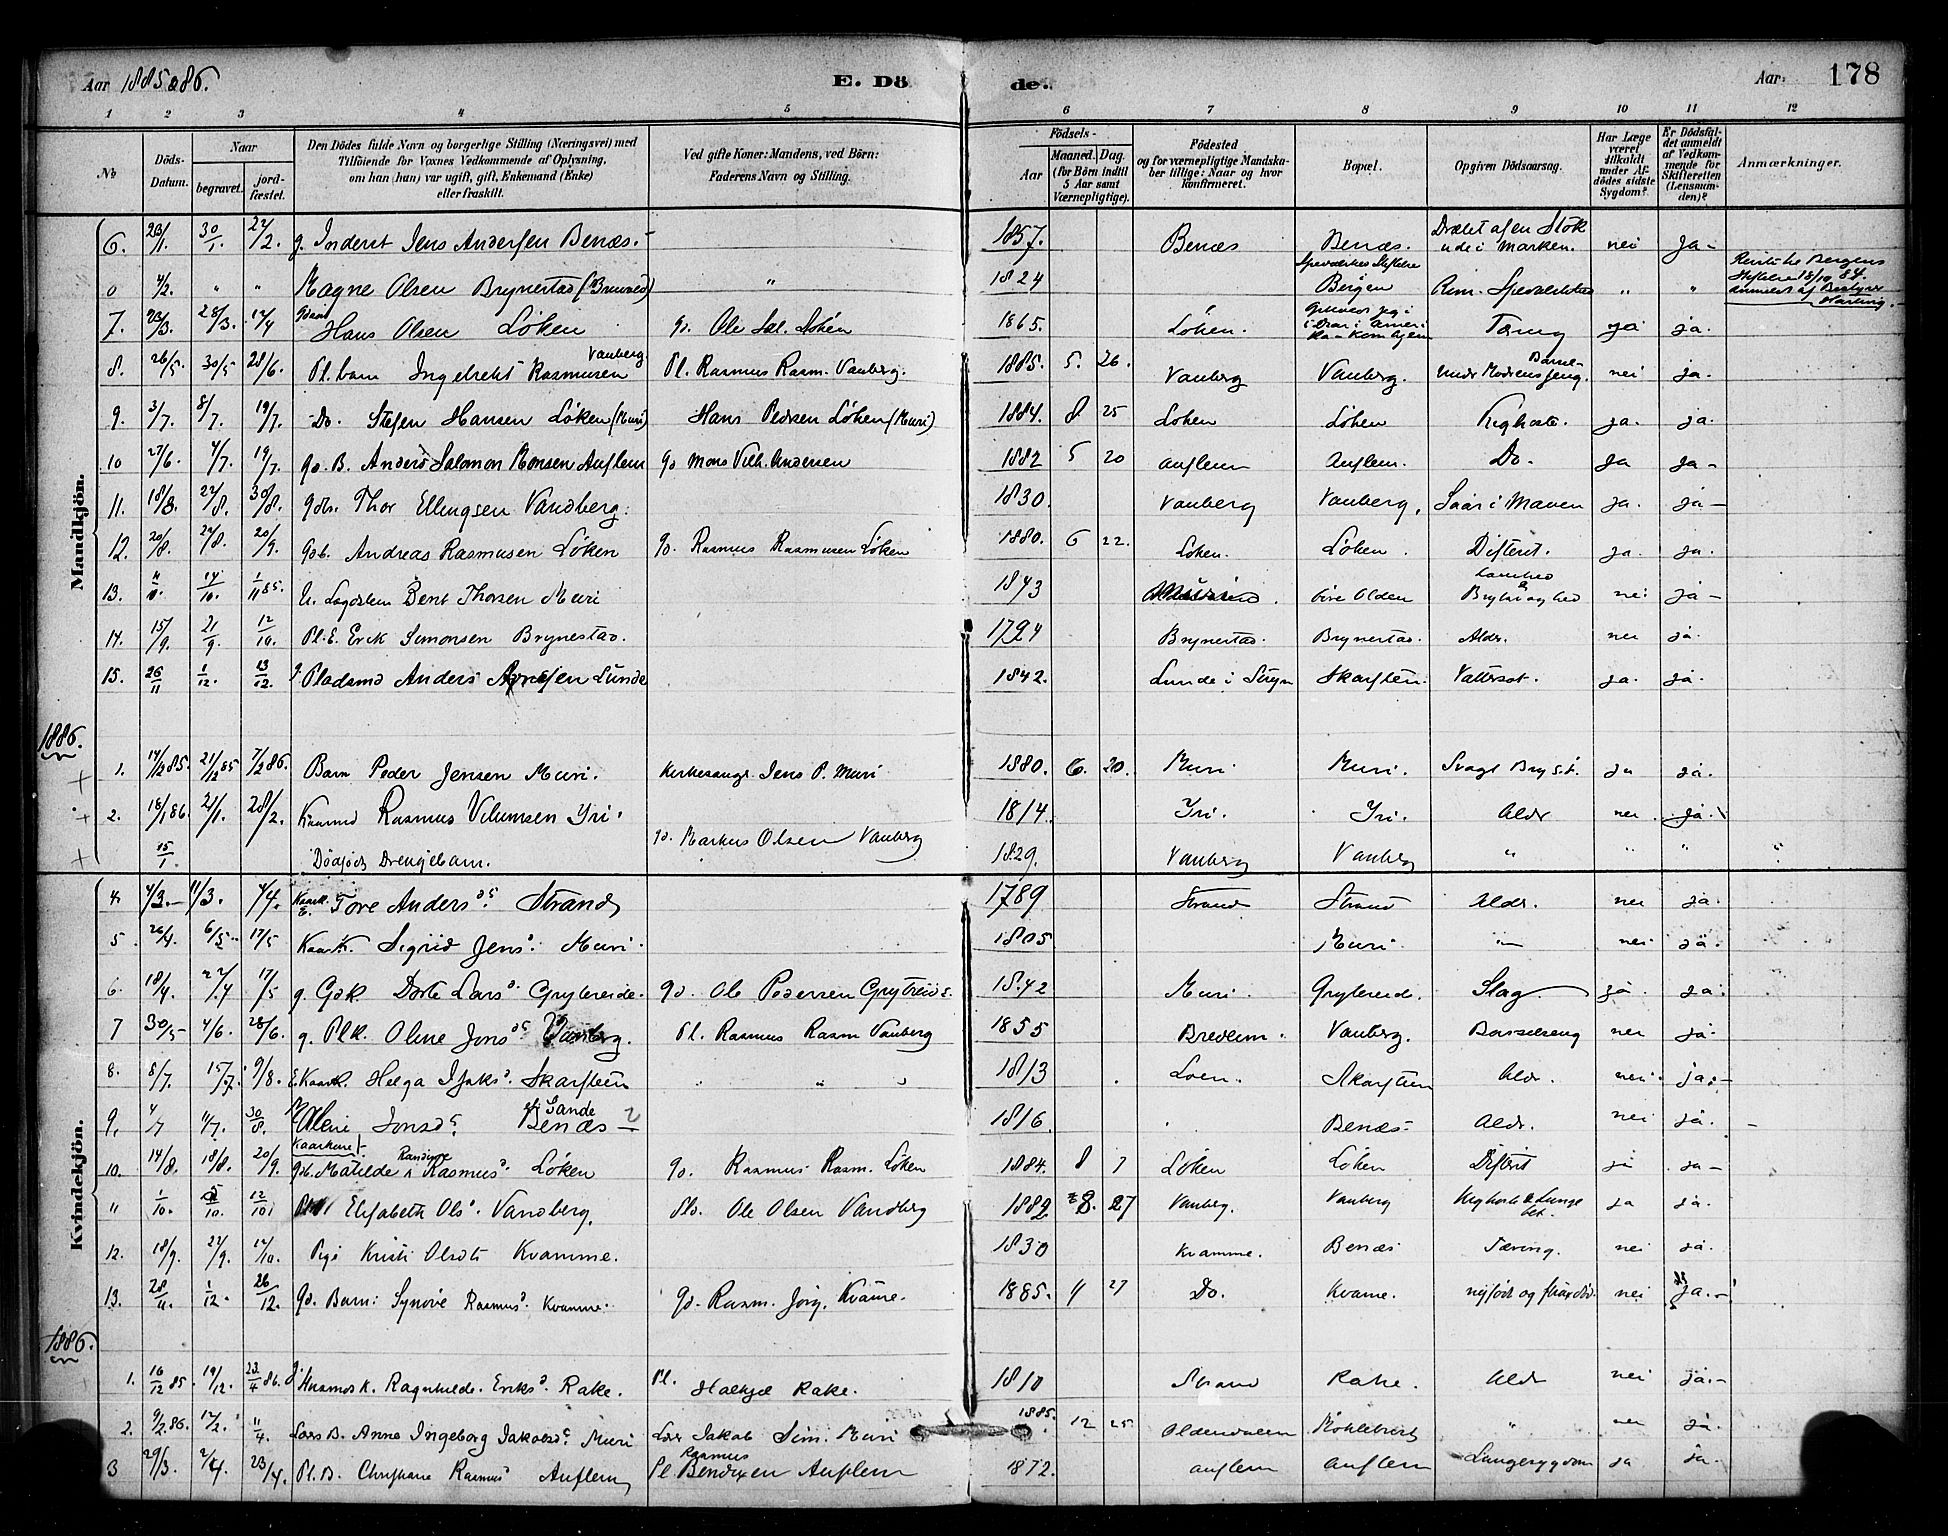 Aar 1885 & 86.
E. Dö de.
Aar: 178
1 2 3 4 5 6 7 8 9 10 11 12
No
Döds-Datum.
Naar
begravet.
jord-fæstet.
Den Dödes fulde Navn og borgerlige Stilling (Næringsvei) med
Tilföiende for Voxnes Vedkommende af Oplysning,
om han (hun) var ugift, gift, Enkemand (Enke)
eller fraskilt.
Ved gifte Koner: Mandens, ved Börn:
Faderens Navn og Stilling.
Födsels-
Aar
Maaned. Dag.
(for Börn indtil
5 Aar samt
Værnepligtige).
Födested
og for værnepligtige Mandska-
ber tillige: Naar og hvor
konfirmeret.
Bopæl.
Opgiven Dödsaarsag.
Har Læge
været
tilkaldt
under Af-
dödes sidste
Sygdom?
Er Dödsfal-
det anmeldt
af Vedkom-
mende for
Skifteretten
(Lensman-
den)?
Anmærkninger.
Mandkjön.
6. 23/1. 30/1. 22/2. g. Inderst Jens Andersen Benæs. 1857. Benæs Benæs. Dræbt af en Stok ude i Marken. nei Ja
0 4/2. " " Magne Olsen Brynestad " 1824 Bergen " "
7. 23/3. 28/3. 12/4 Hans Olsen Löken Ole Löken 1865. Löken. Tæring ja ja.
8. 26/5. 30/5 28/6. Pl. barn Ingebrekt Rasmusen Vanberg Pl. Rasmus Rasm. Vanberg. 1885. 5. 26. Vanberg Vanberg. nei ja.
9. 3/7. 8/7. 19/7. Do. Stefen Hansen Löken (Muri) Hans Pedersen Löken (Muri) 1884. 8 25 Löken Löken Kighoste. ja. ja.
10 27/6. 4/7. 19/7. gd. B. Anders Salomon Monsen Auflem gd Mons Vilh. Andersen 1882 5 20 Auflem Auflem. Do. ja ja
11. 18/8. 22/8. 30/8. Thor Ellingsen Vandberg. 1830. Vanberg Vanberg. Saar i Maven ja. ja
12. 20/8. 24/8. 20/9. gdb. Andreas Rasmusen Löken gd. Rasmus Rasmusen Löken 1880. 6 22. Löken. Löken. Difterit. ja. ja.
13. 4/10. 14/10. 1/11 85. Bent Thorsen Muri 1843 Olden nei ja
14. 15/9. 21/9 12/10. Pl. E. Erik Simonsen Brynestad. 1794 Brynestad. Brynestad. Aldr. nei ja
15. 26/11 1/12. 13/12. Pladsmd Anders Lunde 1842. Lunde i Stryn Skarsten. Vattersot. ja. ja.
1886.
1. 14/12 85. 21/12 85 7/2 86. Barn Peder Jensen Muri. Kirkesangr. Jens P. Muri 1880. 6. 20. Muri Muri. Svagt Bryst. ja ja.
2. 18/1 86. 21/1. 28/2. Kaarmd Rasmus Yri. 1814. Yri. Yri. Aldr nei ja.
15/1. Dödfödt Drengebarn. gd. Markus Olsen Vanberg 1829. Vanberg Vanberg " " " "
Kvindekjön.
4. 4/3. 11/3. 4/4. Tore Andersd. Strand 1789 Strand Strand Aldr. nei ja.
5. 26/4. 6/5. 17/5 Kaark. Sigrid Jensd. Muri. 1805 Muri. " nei ja.
6. 18/4. 22/4 17/5 g. Gdk. Dorte Larsd. Grytereide. gd. Ole Pedersen Grytreide. 1842 Muri. Grytereide. Slag. ja ja
7 30/5 4/6. 28/6. g. Plk. Oline Jonsd. Vanberg. Pl. Rasmus Rasm Vanberg 1855 Bredheim. Vanberg. Barselseng nei ja
8. 8/7. 15/7. 9/8. E. Kaark. Helga Skarsteen " " " 1813 Loen. Skarsteen Aldr. nei. ja.
9. 4/7 11/7. 30/8. Jonsd. Sande Benæs 1816. Benæs Aldr. nei ja.
Kaarkone
10. 14/8. 18/8. 20/9. gdb. Matilde Randine Rasmusd. Löken gd. Rasmus Rasm. Löken 1884. 8 7 Löken Löken Difterit ja ja
11 1/10. 5/10. 12/10. Elisabeth Olsd. Vandberg. Ole Olsen Vandberg 1882 8. 27 Vanberg. Vanberg Kighoste & Lungebet. ja ja.
12. 18/9. 22/9. 12/10. Pige Kristi Olsdt Kvamme. 1830 Kvamme. Benæs Tæring. nei ja.
13. 28/11. 1/12. 26/12. gd. Barn: Synöve Rasmusd. Kvamme. gd. Rasm. Jörg. Kvame. 1885. 11 27 Do. Kvame. nyfödt og strax död. nei ja.
1886.
1. 16/12 85. 19/12. 23/4 86. Husmds K. Ragnhilde Eriksd. Rake. Pl. Rake. 1810 Strand Rake. Aldr nei ja.
2. 9/2 86. 17/2. 11/4. Anne Ingeborg Jakobsd. Muri Jakob Sim. Muri 1885. 12 25. Oldendalen " nei ja
3 29/3. 2/4. 23/4. Pl. B. Christiane Rasmusd Auflem Pl. Rasmus Bendixen Auflem 1872. Auflem Auflem Lungesygdom ja ja.